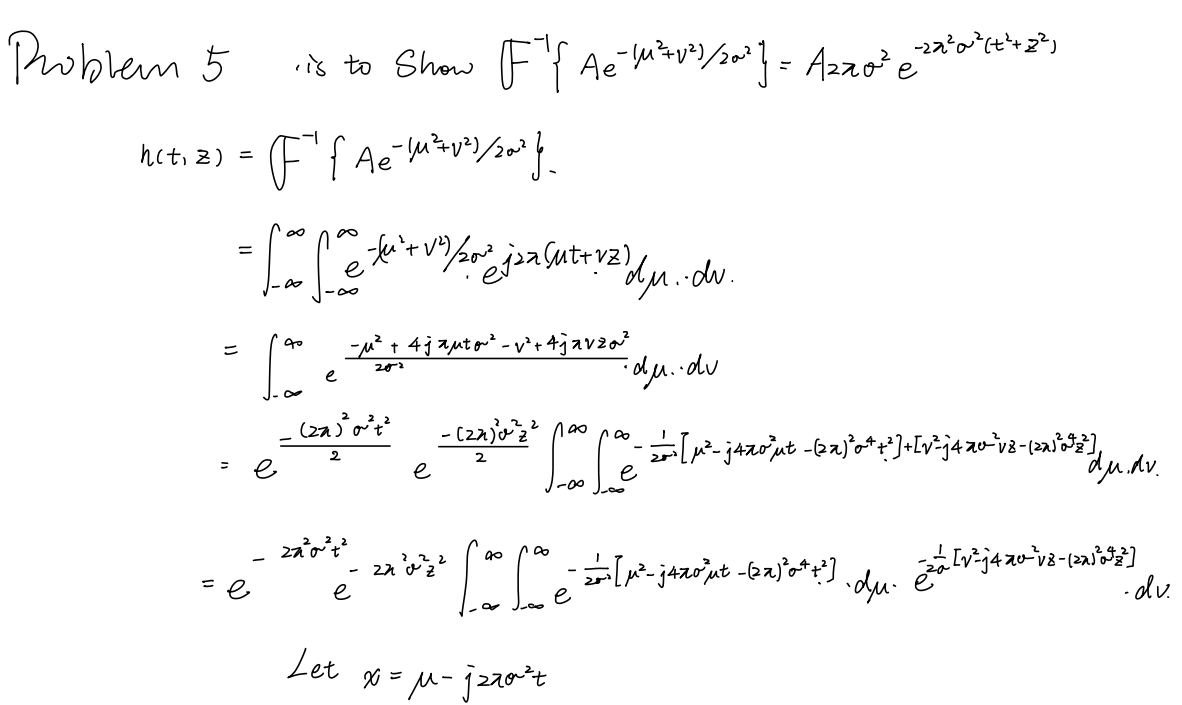 Problem 5 is to show F⁻¹{ Ae^{-(μ²+v²)/2σ²} } = A2πσ² e^{-2π²σ²(t²+z²)}
h(t, z) = F⁻¹ { Ae^{-(μ²+v²)/2σ²} }.
= ∫_{-∞}^{∞} ∫_{-∞}^{∞} e^{-(μ²+v²)/2σ²} e^{j2π(μt+vz)} dμ. dv.
= ∫_{-∞}^{∞} e^{(-μ² + 4jπμtσ² - v² + 4jπvzσ²)/2σ²} dμ. dv
= e^{-(2π)²σ²t²/2} e^{-(2π)²σ²z²/2} ∫_{-∞}^{∞} ∫_{-∞}^{∞} e^{-1/2σ² [μ²-j4πσ²μt-(2π)²σ⁴t²]+[v²-j4πσ²vz-(2π)²σ⁴z²]} dμ.dv.
= e^{-2π²σ²t²} e^{-2π²σ²z²} ∫_{-∞}^{∞} ∫_{-∞}^{∞} e^{-1/2σ² [μ²-j4πσ²μt-(2π)²σ⁴t²]} .dμ. e^{-1/2σ [v²-j4πσ²vz-(2π)²σ⁴z²]} .dv.
Let x = μ - j2πσ²t